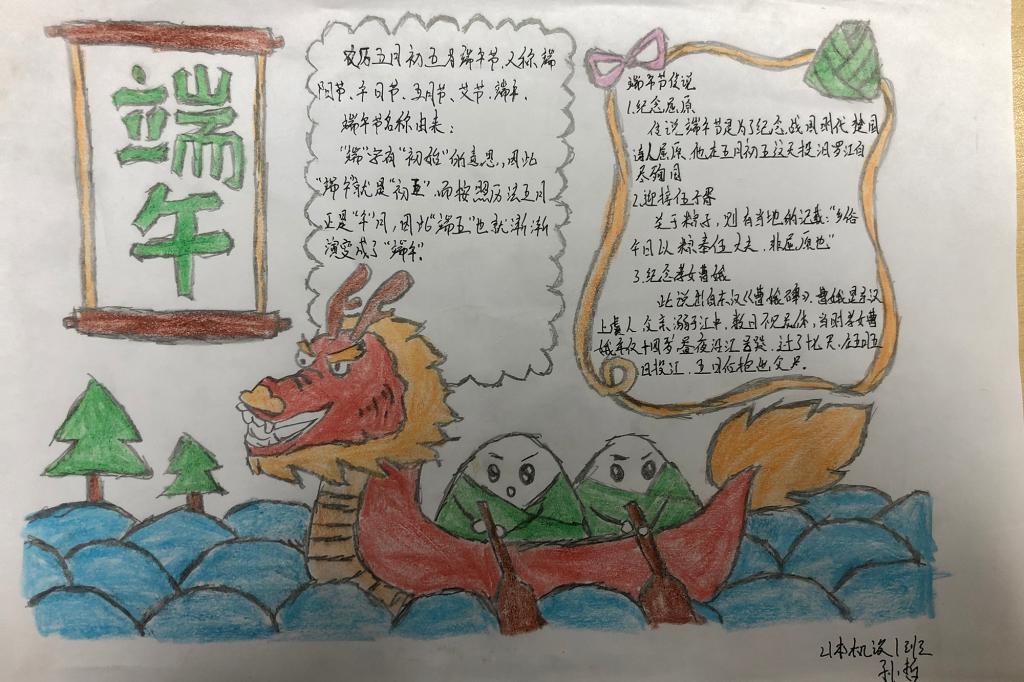 端午
农历五月初五是端午节,又称端
阳节、午日节、五月节、艾节、端午、
端午节名称由来:
"端"字有"初始"的意思,因此
"端午"就是"初五"。而按照历法五月
正是"午"月,因此"端五"也就渐渐
演变成了"端午"
端午节传说
1.纪念屈原
传说端午节是为了纪念战国时代楚国
诗人屈原,他在五月初五这天投汨罗江自
尽殉国
2.迎接伍子胥
关于粽子,则有当地的记载:"乡俗
午日以粽奉伍大夫,非屈原也"
3.纪念孝女曹娥
此说出自东汉《曹娥碑》。曹娥是东汉
上虞人,父亲溺于江中,数日不见尸体,当时孝女曹
娥年仅十四岁,昼夜沿江号哭,过了十七天,在五月五
日投江,五日后抱出父尸.
21本机设1班
孙哲